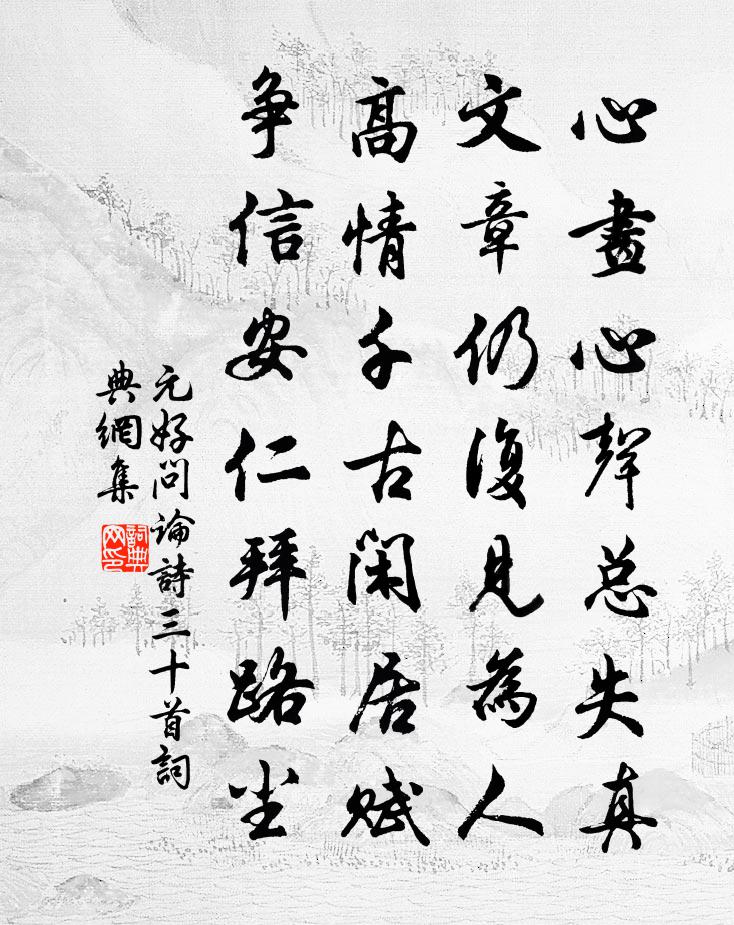 心畫心聲总失真
文章仍復見為人
高情千古閑居賦
争信安仁拜路尘
元好问論詩三十首詞
典網集
詞典网印